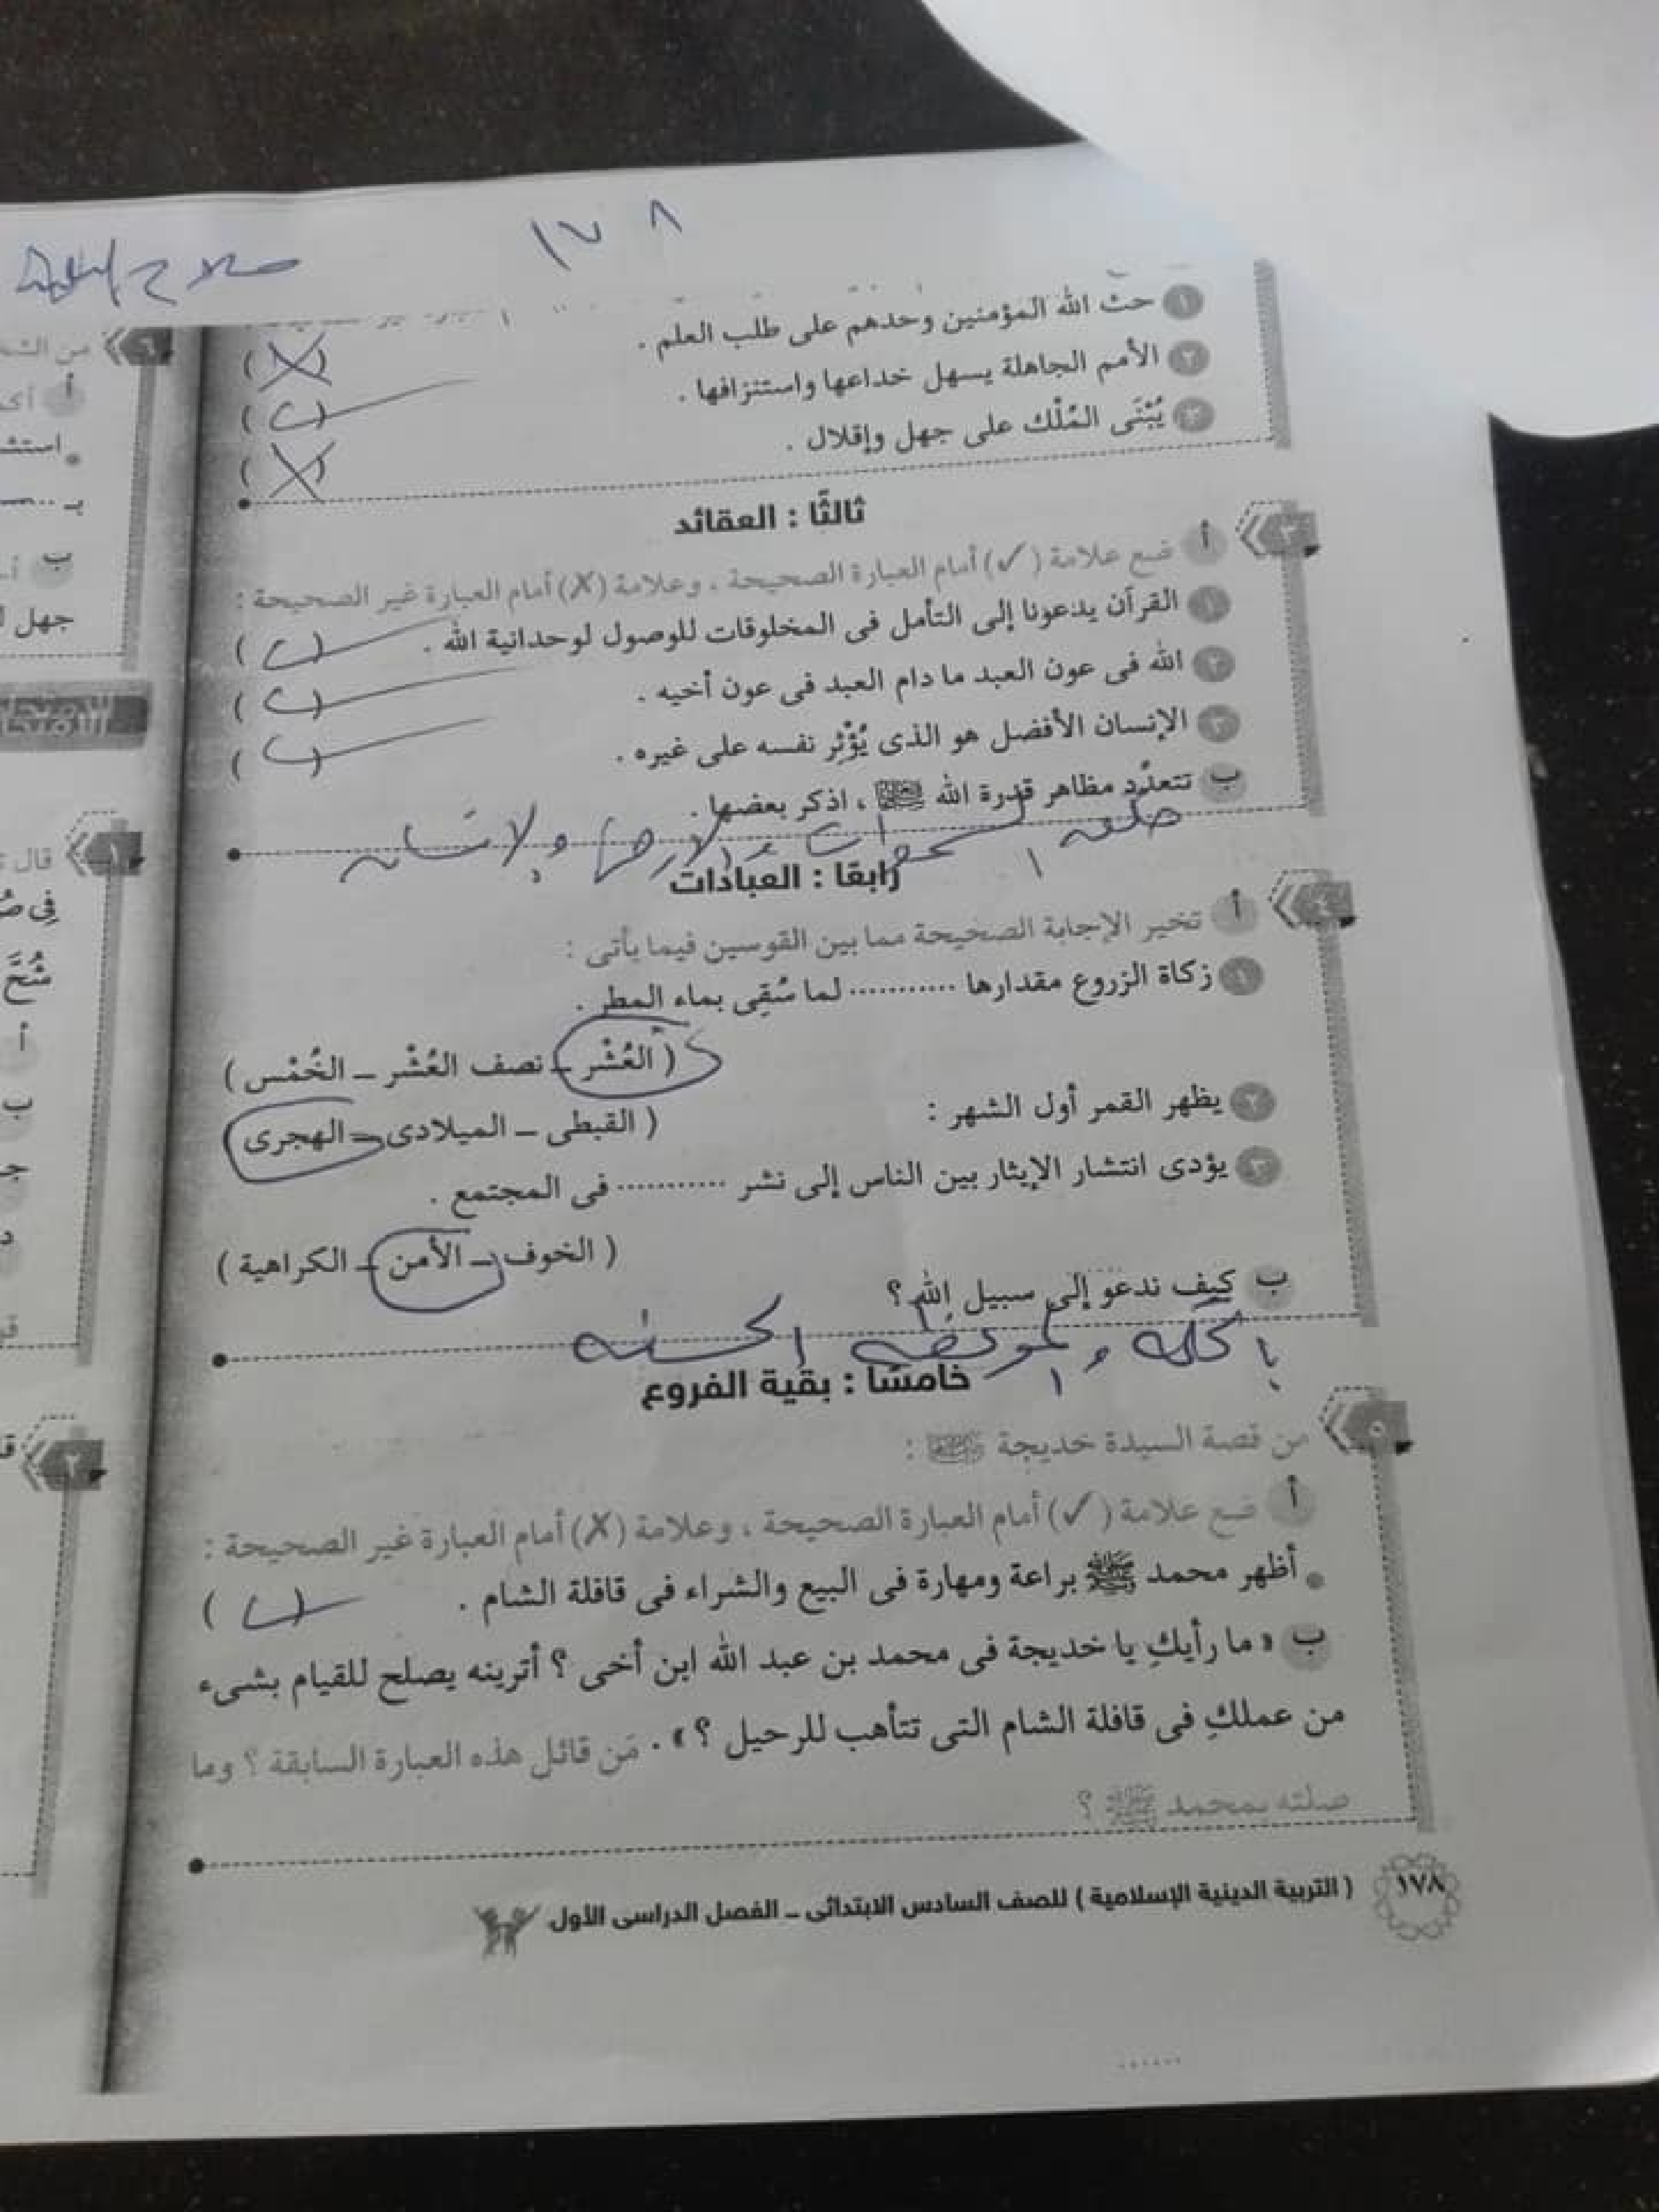 ١٧٨
صلاح
١ حث الله المؤمنين وحدهم على طلب العلم . (X)
٢ الأمم الجاهلة يسهل خداعها واستنزافها . (✓)
٣ يُبْنَى المُلْك على جهل وإقلال . (X)
ثالثًا : العقائد
٣ أ ضع علامة (✓) أمام العبارة الصحيحة ، وعلامة (X) أمام العبارة غير الصحيحة :
١ القرآن يدعونا إلى التأمل فى المخلوقات للوصول لوحدانية الله . (✓)
٢ الله فى عون العبد ما دام العبد فى عون أخيه . (✓)
٣ الإنسان الأفضل هو الذى يُؤْثِر نفسه على غيره . (✓)
ب تتعدَّد مظاهر قدرة الله ﷻ ، اذكر بعضها .
خلق السموات والارض والانسان
رابعًا : العبادات
٤ أ تخير الإجابة الصحيحة مما بين القوسين فيما يأتى :
١ زكاة الزروع مقدارها ........... لما سُقِى بماء المطر .
( العُشْر – نصف العُشْر – الخُمْس )
٢ يظهر القمر أول الشهر :
( القبطى – الميلادى – الهجرى )
٣ يؤدى انتشار الإيثار بين الناس إلى نشر ........... فى المجتمع .
( الخوف – الأمن – الكراهية )
ب كيف ندعو إلى سبيل الله ؟
بالحكمة والموعظة الحسنه
خامسًا : بقية الفروع
٥ من قصة السيدة خديجة :
أ ضع علامة (✓) أمام العبارة الصحيحة ، وعلامة (X) أمام العبارة غير الصحيحة :
• أظهر محمد ﷺ براعة ومهارة فى البيع والشراء فى قافلة الشام . (✓)
ب « ما رأيكِ يا خديجة فى محمد بن عبد الله ابن أخى ؟ أترينه يصلح للقيام بشىء
من عملكِ فى قافلة الشام التى تتأهب للرحيل ؟ » . مَن قائل هذه العبارة السابقة ؟ وما
صلته بمحمد ﷺ ؟
١٧٨ ( التربية الدينية الإسلامية ) للصف السادس الابتدائى – الفصل الدراسى الأول
٦ من
أ
استش
ب
جهل
١ قال
فِى
شُحَّ
أ
ب
جـ
د
٢